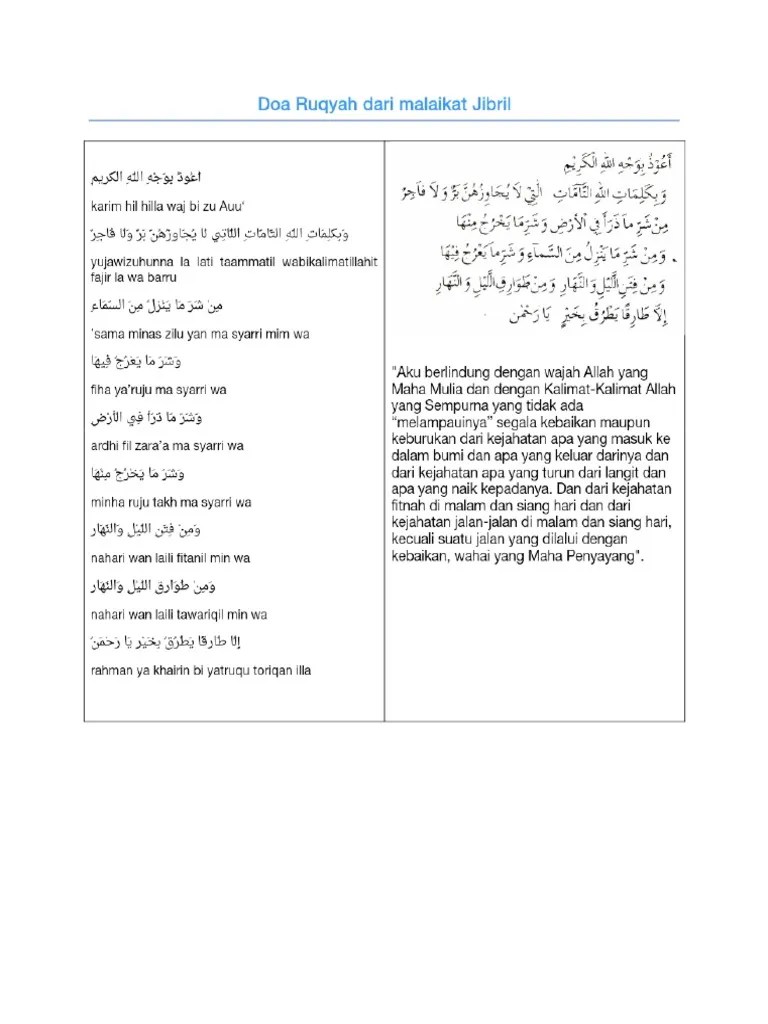 Doa Ruqyah dari malaikat Jibril
اعُوذُ بِوَجْهِ اللَّهِ الكريم
karim hil hilla waj bi zu Auu‘
وَبِكَلِمَاتِ اللَّهِ التَّامَّاتِ اللَّاتِي لَا يُجَاوِزُهُنَّ بَرٌّ وَلَا فَاجِرٌ
yujawizuhunna la lati taammatil wabikalimatillahit
fajir la wa barru
مِنْ شَرِّ مَا يَنْزِلُ مِنَ السَّمَاءِ
‘sama minas zilu yan ma syarri mim wa
وَشَرِّ مَا يَعْرُجُ فِيهَا
fiha ya’ruju ma syarri wa
وَشَرِّ مَا ذَرَأَ فِي الأَرْضِ
ardhi fil zara’a ma syarri wa
وَشَرِّ مَا يَخْرُجُ مِنْهَا
minha ruju takh ma syarri wa
وَمِنْ فِتَنِ اللَّيْلِ وَالنَّهَارِ
nahari wan laili fitanil min wa
وَمِنْ طَوَارِقِ اللَّيْلِ وَالنَّهَارِ
nahari wan laili tawariqil min wa
إِلَّا طَارِقًا يَطْرُقُ بِخَيْرٍ يَا رَحْمَنُ
rahman ya khairin bi yatruqu toriqan illa
أَعُوْذُ بِوَجْهِ اللهِ الْكَرِيْمِ
وَبِكَلِمَاتِ اللهِ التَّامَّاتِ الَّتِيْ لَا يُجَاوِزُهُنَّ بَرٌّ وَلَا فَاجِرٌ
مِنْ شَرِّ مَا ذَرَأَ فِي الْأَرْضِ وَشَرِّ مَا يَخْرُجُ مِنْهَا
وَمِنْ شَرِّ مَا يَنْزِلُ مِنَ السَّمَآءِ وَشَرِّ مَا يَعْرُجُ فِيْهَا
وَمِنْ فِتَنِ اللَّيْلِ وَالنَّهَارِ وَمِنْ طَوَارِقِ اللَّيْلِ وَالنَّهَارِ
إِلَّا طَارِقًا يَطْرُقُ بِخَيْرٍ يَا رَحْمٰنُ
"Aku berlindung dengan wajah Allah yang
Maha Mulia dan dengan Kalimat-Kalimat Allah
yang Sempurna yang tidak ada
“melampauinya” segala kebaikan maupun
keburukan dari kejahatan apa yang masuk ke
dalam bumi dan apa yang keluar darinya dan
dari kejahatan apa yang turun dari langit dan
apa yang naik kepadanya. Dan dari kejahatan
fitnah di malam dan siang hari dan dari
kejahatan jalan-jalan di malam dan siang hari,
kecuali suatu jalan yang dilalui dengan
kebaikan, wahai yang Maha Penyayang".